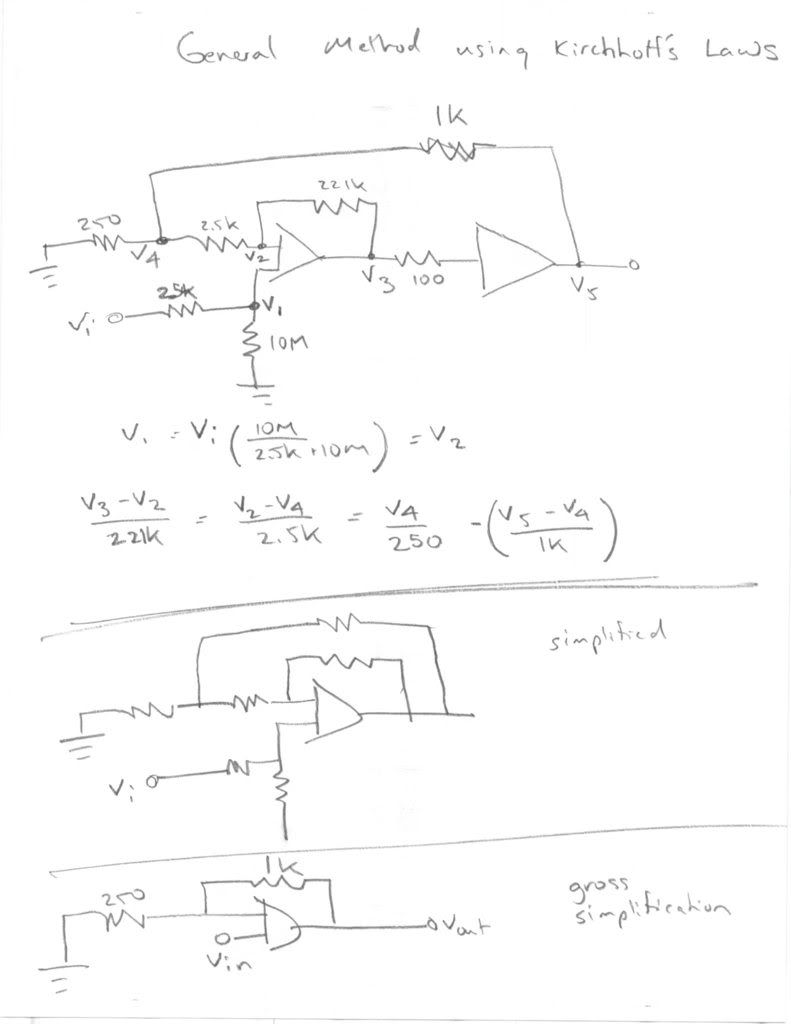 General Method using Kirchhoff's Laws
1K
221K
250
2.5K
V4
V2
V3
100
V5
2.5K
Vi
V1
10M
V1 = Vi (10M / 2.5K + 10M) = V2
V3 - V2 / 221K = V2 - V4 / 2.5K = V4 / 250 - (V5 - V4 / 1K)
simplified
Vi
1K
250
gross
simplification
Vout
Vin